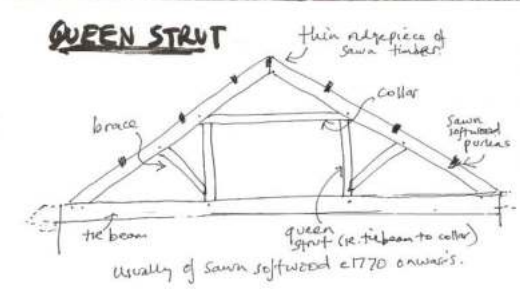 QUEEN STRUT
thin ridgepiece of
sawn timber.
collar
brace
sawn
softwood
purlins
tie beam
queen
strut (ie. tiebeam to collar)
usually of sawn softwood c1770 onwards.